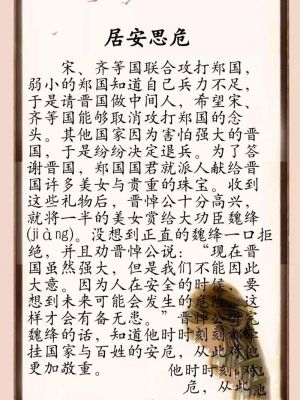 居安思危
宋、齐等国联合攻打郑国，
弱小的郑国知道自己兵力不足，
于是请晋国做中间人，希望宋、
齐等国能够取消攻打郑国的念
头。其他国家因为害怕强大的晋
国，于是纷纷决定退兵。为了答
谢晋国，郑国国君就派人献给晋
国许多美女与贵重的珠宝。收到
这些礼物后，晋悼公十分高兴，
就将一半的美女赏给大功臣魏绛
(jiàng)。没想到正直的魏绛一口拒
绝，并且劝晋悼公说：“现在晋
国虽然强大，但是我们不能因此
大意。因为人在安全的时候，要
想到未来可能会发生的危险，这
样才会有备无患。”晋悼公听完
魏绛的话，知道他时时刻刻都牵
挂国家与百姓的安危，从此对他
更加敬重。 他时时刻
危，从此